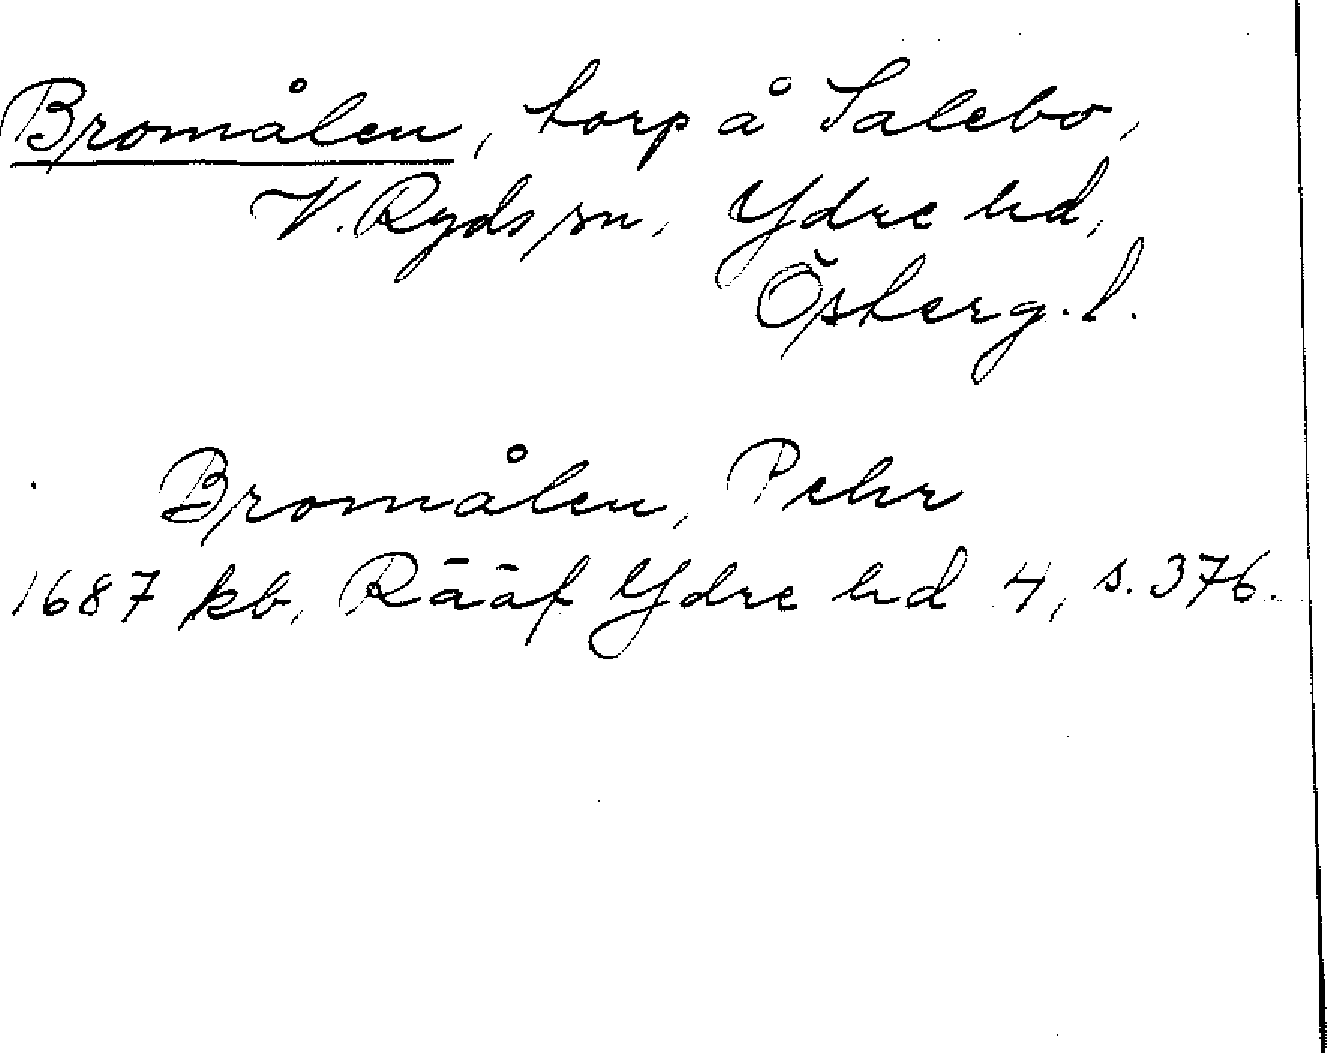 Bromålen, torp å Salebo,
V. Ryds sn, Ydre hd,
Österg. l.
Bromålen, Pehr
1687 kb, Rääf Ydre hd 4, s. 376.